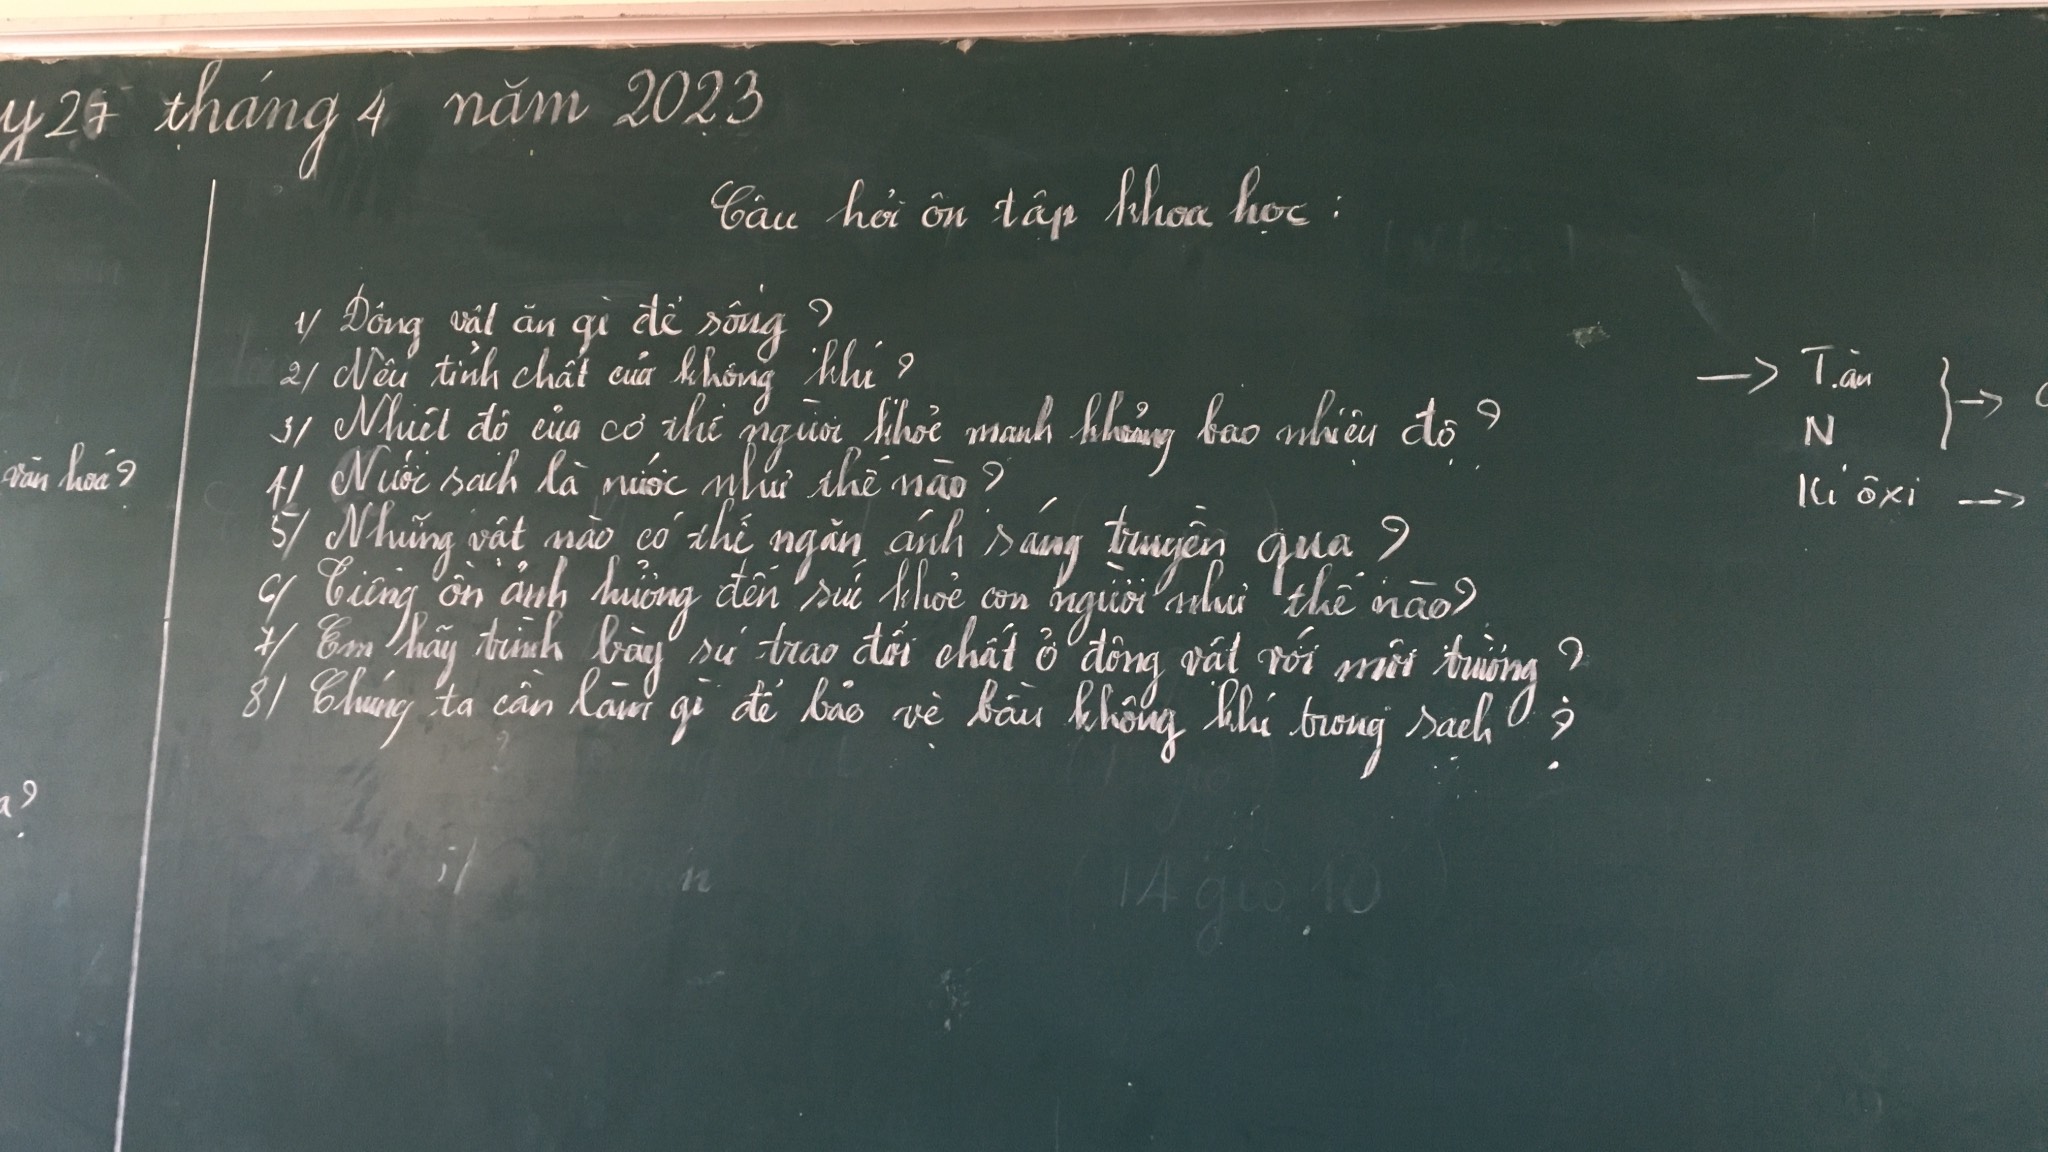 y 27 tháng 4 năm 2023
Câu hỏi ôn tập khoa học :
1/ Động vật ăn gì để sống ?
2/ Nêu tính chất của không khí ?
3/ Nhiệt độ của cơ thể người khoẻ mạnh khoảng bao nhiêu độ ?
4/ Nước sạch là nước như thế nào ?
5/ Những vật nào có thể ngăn ánh sáng truyền qua ?
6/ Tiếng ồn ảnh hưởng đến sức khoẻ con người như thế nào ?
7/ Em hãy trình bày sự trao đổi chất ở động vật với môi trường ?
8/ Chúng ta cần làm gì để bảo vệ bầu không khí trong sạch ?
văn hoá ?
a ?
→ T.ăn
N
Kí ôxi →
14 giờ 10